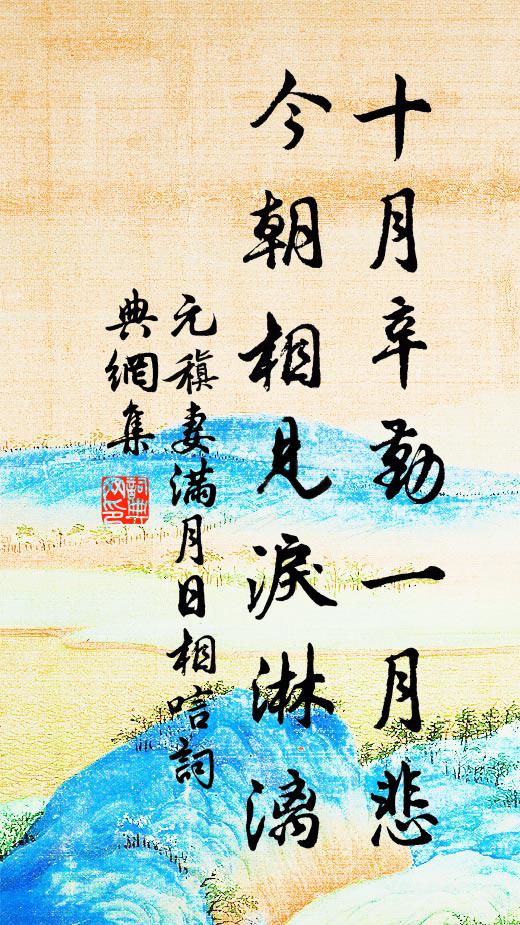 十月辛勤一月悲
今朝相見淚淋漓
元稹妻滿月日相唁詞
典網集